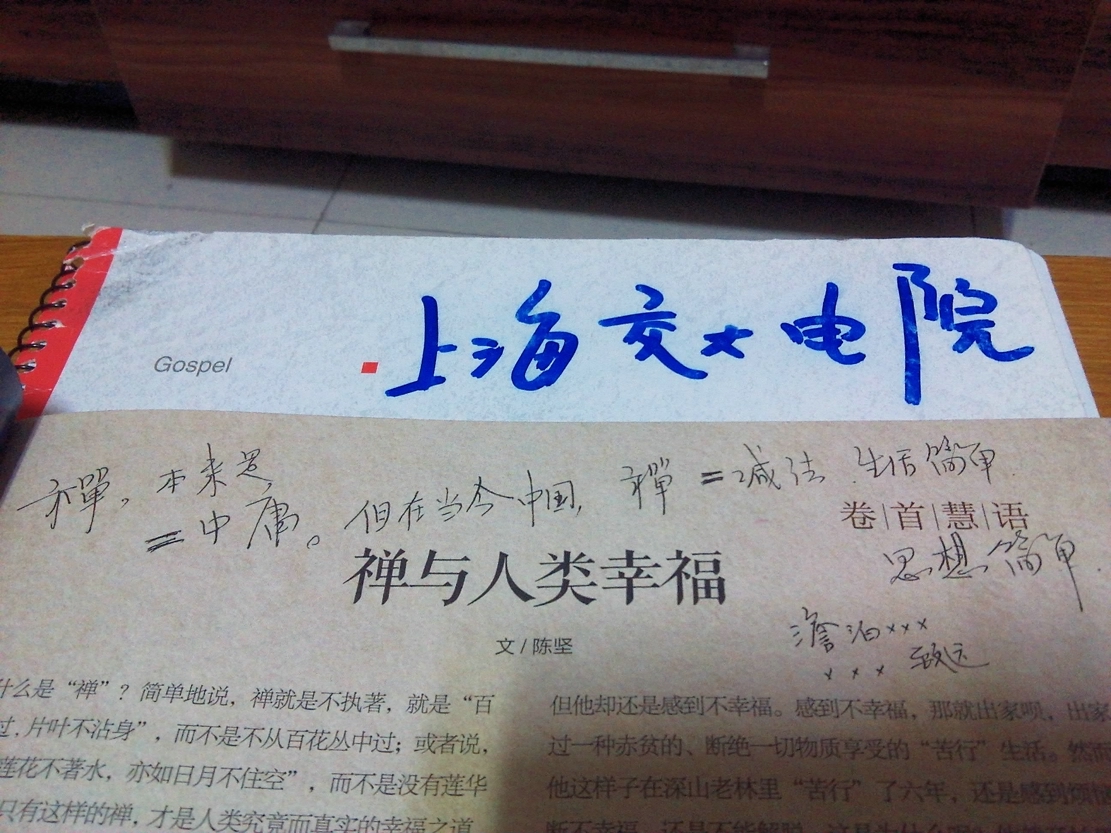 Gospel
上海交大电院
禅，本来是
=中庸。但在当今中国，禅=减法 生活简单.
卷|首|慧|语
思想简单.
禅与人类幸福
澹泊×××
×××致远
文/陈坚
什么是“禅”？简单地说，禅就是不执著，就是“百
过，片叶不沾身”，而不是不从百花丛中过；或者说，
莲花不著水，亦如日月不住空”，而不是没有莲华
只有这样的禅，才是人类究竟而真实的幸福之道
但他却还是感到不幸福。感到不幸福，那就出家呗，出家
过一种赤贫的、断绝一切物质享受的“苦行”生活。然而
他这样子在深山老林里“苦行”了六年，还是感到烦恼